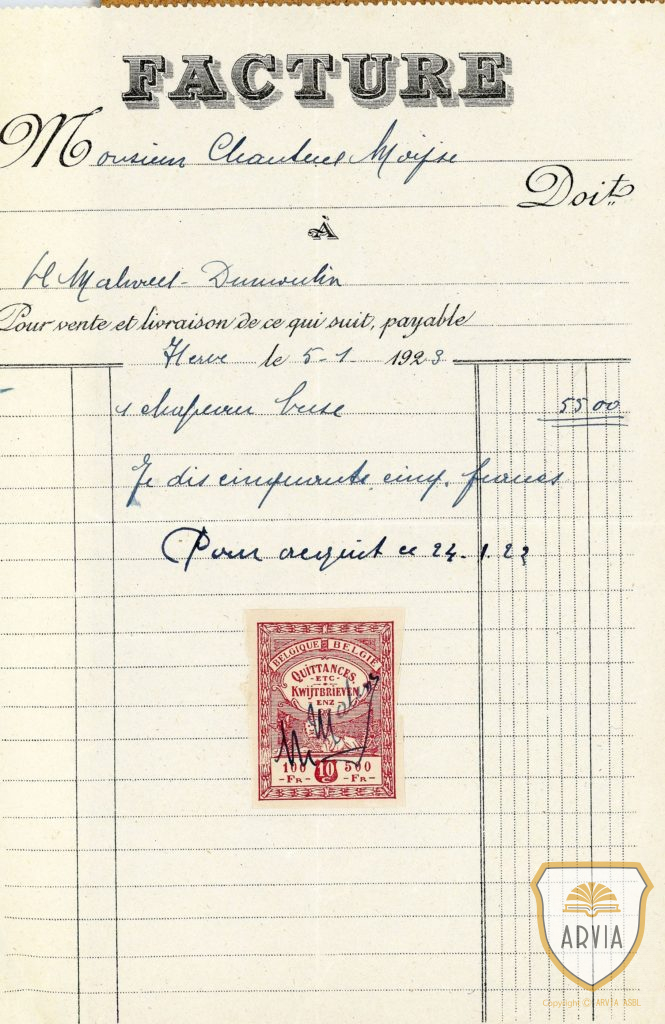 FACTURE
Monsieur Chanteux Moÿse
Doit
À
Dumoulin
Pour vente et livraison de ce qui suit, payable
Herve le 5-1 1923
1 chapeau buse 55 00
Je dis cinquante cinq francs
Pour acquit ce 24.1.23
BELGIQUE BELGIË
QUITTANCES
ETC
KWIJTBRIEVEN
ENZ
100 10 500
FR C FR
ARVIA
Copyright © ARVIA ASBL